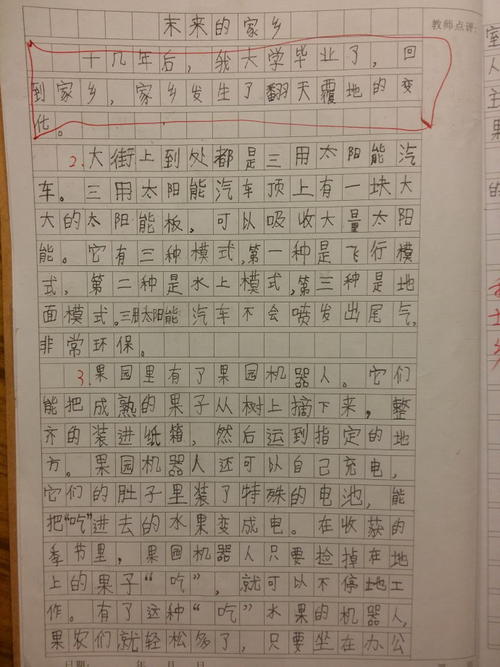 未来的家乡
教师点评:
十几年后，我大学毕业了，回
到家乡，家乡发生了翻天覆地的变
化。
2.大街上到处都是三用太阳能汽
车。三用太阳能汽车顶上有一块大
大的太阳能板。可以吸收大量太阳
能。它有三种模式，第一种是飞行模
式，第二种是水上模式，第三种是地
面模式。三用太阳能汽车不会喷发出尾气，
非常环保。
3.果园里有了果园机器人。它们
能把成熟的果子从树上摘下来，整
齐的装进纸箱，然后运到指定的地
方。果园机器人还可以自己充电，
它们的肚子里装了特殊的电池，能
把“吃”进去的水果变成电。在收获的
季节里，果园机器人只要捡掉在地
上的果子“吃”，就可以不停地工
作。有了这种“吃”水果的机器人，
果农们就轻松多了，只要坐在办公
日期： 年 月 日